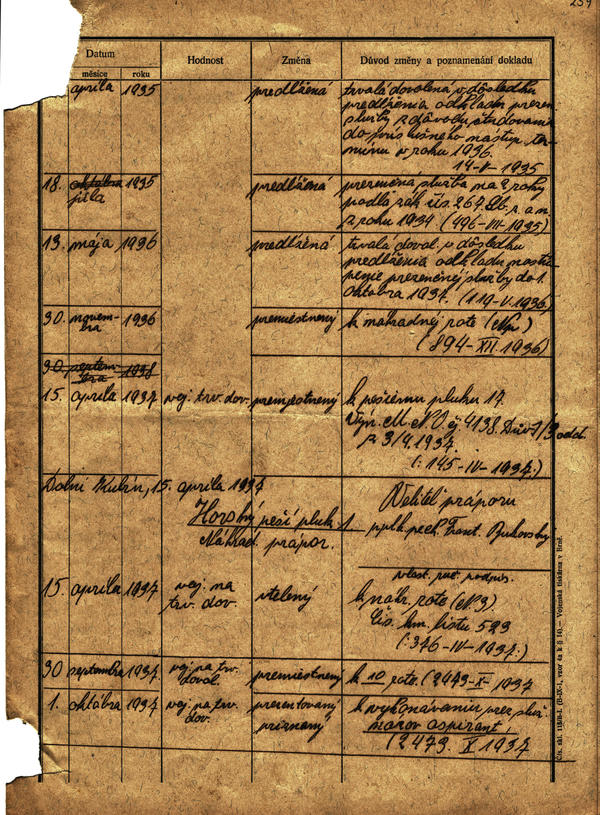 239
Datum
Hodnost
Změna
Důvod změny a poznamenání dokladu
měsíce
roku
apríla 1935
predlžená
trvalá dovolená v dôsledku
predlženia odkladu prezen.
služby z dôvodu študovania
do príslušného nástup. ter-
mínu v roku 1936.
14-V-1935
18. októbra 1935
júla
predlžená
prezenčná služba na 2 roky
podľa zák. čís. 267 Sb. z. a n.
z roku 1934. (496-VII-1935)
13. mája 1936
predlžená
trvalá dovol. v dôsledku
predlženia odkladu nastú-
penie prezenčnej služby do 1.
októbra 1937. (119-V.1936)
30. novem-
bra 1936
premiestnený
k náhradnej rote
(894-XII.1936)
30. septem-
bra 1938
15. apríla 1937
voj. trv. dov.
premiestnený
k pešiemu pluku 17.
Výn. M.N.O. čj. 4138. Dův. 1/3 odd.
z 3/4.1937.
(:145-IV-1937.)
Dolní Kubín, 15. apríla 1937
Horský peší pluk 1
Náhrad. prápor.
Velitel práporu
pplk. pech. Frant. Bukovský
vlast. ruč. podpis.
15. apríla 1937
voj. na
trv. dov.
vtelený
k náhr. rote (N.3)
Čís. km. listu 523
(:346-IV-1937.)
30 septembra 1937.
voj. na trv.
dovol.
premiestnený
k 10 rote. (2473-X-1937
1. októbra 1937
voj. na trv.
dov.
prezentovaný
priznaný
k vykonávaniu prez. služ.
(2473. X 1937